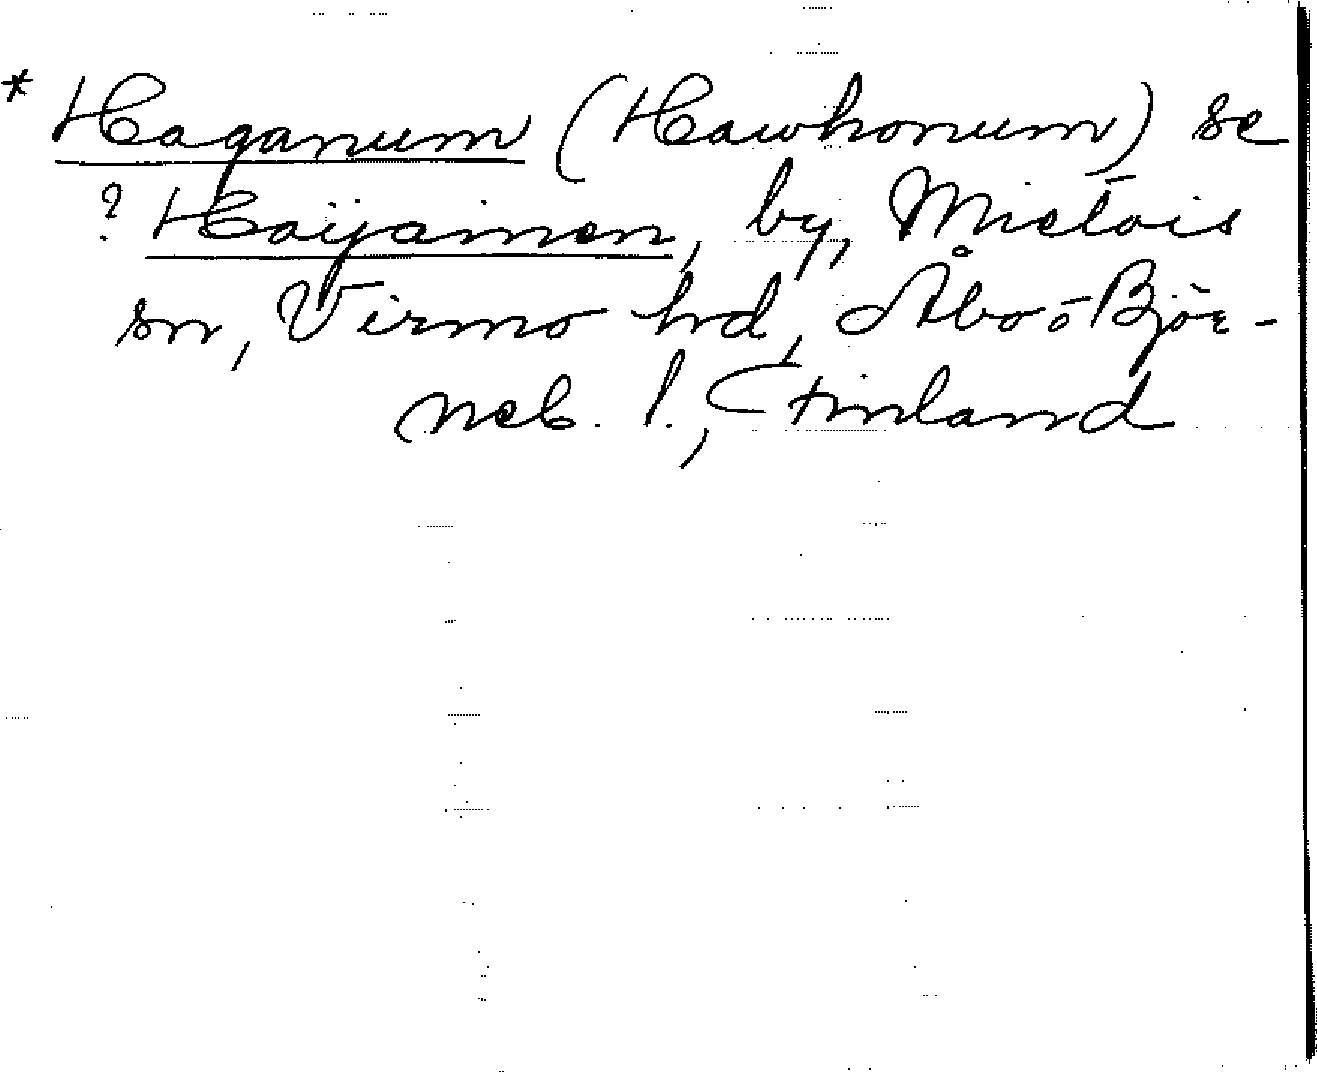 * Haganum (Hawhonum) se
? Haijainen, by, Mietois
sn, Virmo hd, Åbo o Björ-
neb. l., Finland